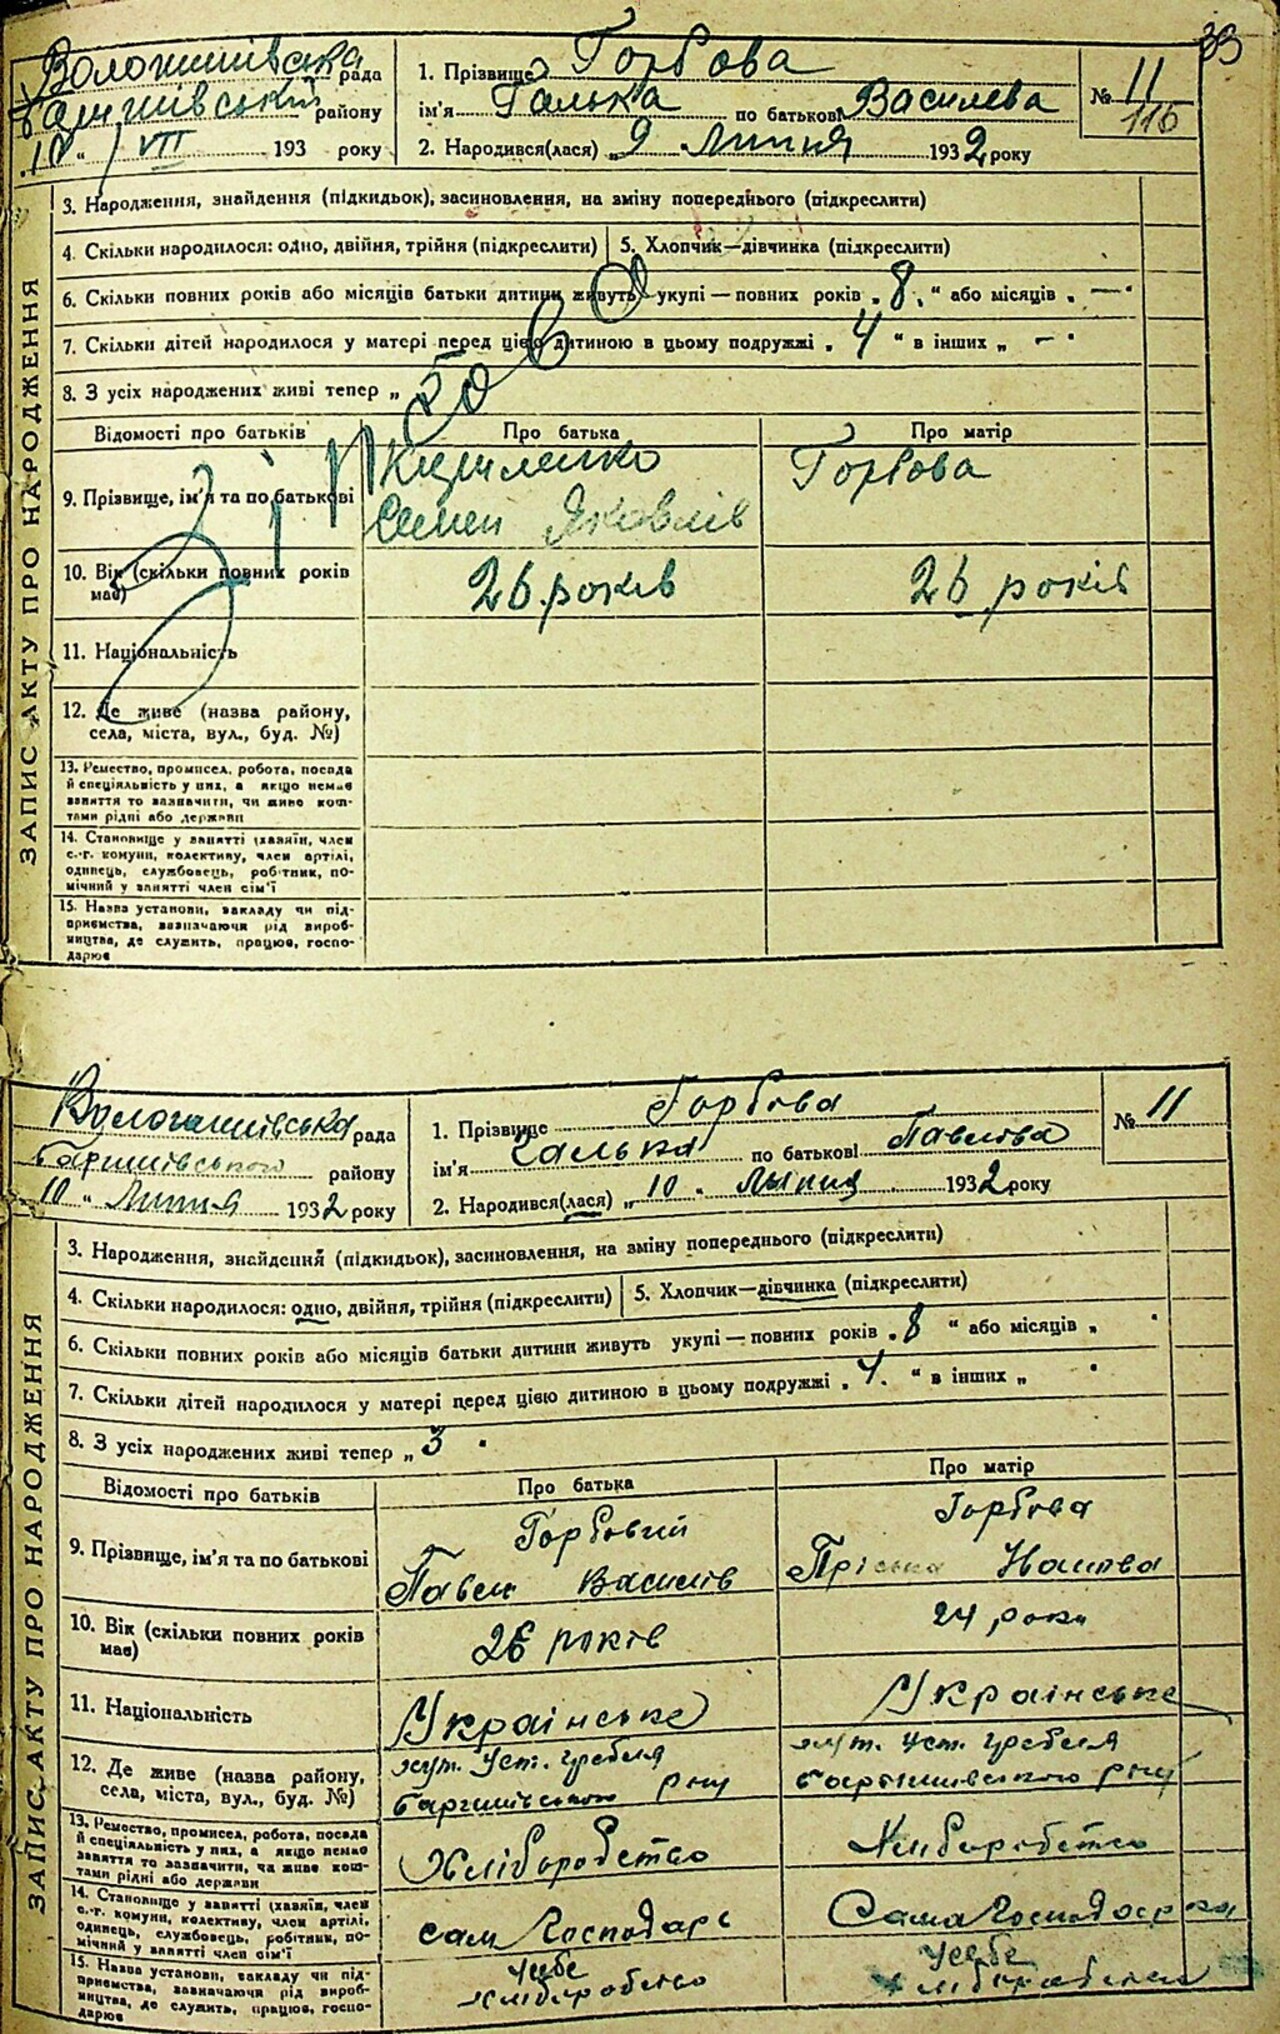 33
Волошинівська рада
Баришівський району
10 " VII 193 року
1. Прізвище Горбова
ім'я Галька по батькові Василева
2. Народився(лася) „ 9 Липня 1932 року
№ 11
116
ЗАПИС АКТУ ПРО НАРОДЖЕННЯ
3. Народження, знайдення (підкидьок), засиновлення, на зміну попереднього (підкреслити)
4. Скільки народилося: одно, двійня, трійня (підкреслити) 5. Хлопчик—дівчинка (підкреслити)
6. Скільки повних років або місяців батьки дитини живуть укупі — повних років „ 8 " або місяців „ — "
7. Скільки дітей народилося у матері перед цією дитиною в цьому подружжі „ 4 " в інших „ — "
8. З усіх народжених живі тепер „
Відомості про батьків Про батька Про матір
9. Прізвище, ім'я та по батькові Горбова
Семен Яковлів
10. Вік (скільки повних років має) 26 років 26 років
11. Національність
12. Де живе (назва району,
села, міста, вул., буд. №)
13. Ремество, промисел, робота, посада
й спеціяльність у них, а якщо немає
заняття то зазначити, чи живе кош-
тами рідні або держави
14. Становище у занятті (хазяїн, член
с.-г. комуни, колективу, член артілі,
одинець, службовець, робітник, по-
мічний у занятті член сім'ї
15. Назва установи, закладу чи під-
приємства, зазначаючи рід вироб-
ництва, де служить, працює, госпо-
дарює
Волошинівська рада
Баришівського району
10 " Липня 1932 року
1. Прізвище Горбова
ім'я Галька по батькові Павлова
2. Народився(лася) „ 10 " Липня 1932 року
№ 11
ЗАПИС АКТУ ПРО НАРОДЖЕННЯ
3. Народження, знайдення (підкидьок), засиновлення, на зміну попереднього (підкреслити)
4. Скільки народилося: одно, двійня, трійня (підкреслити) 5. Хлопчик—дівчинка (підкреслити)
6. Скільки повних років або місяців батьки дитини живуть укупі — повних років „ 8 " або місяців „ "
7. Скільки дітей народилося у матері перед цією дитиною в цьому подружжі „ 4. " в інших „ "
8. З усіх народжених живі тепер „ 3 "
Відомості про батьків Про батька Про матір
9. Прізвище, ім'я та по батькові Горбовий Горбова
Павел Василів Пріська Іванова
10. Вік (скільки повних років має) 26 років 24 роки
11. Національність Українське Українське
12. Де живе (назва району,
села, міста, вул., буд. №)
хут. Уст. Гребля хут. Уст. Гребля
Баришівського р-ну Баришівського р-ну
13. Ремество, промисел, робота, посада
й спеціяльність у них, а якщо немає
заняття то зазначити, чи живе кош-
тами рідні або держави
Хліборобство Хліборобство
14. Становище у занятті (хазяїн, член
с.-г. комуни, колективу, член артілі,
одинець, службовець, робітник, по-
мічний у занятті член сім'ї
сам Господарь Сама Господарка
15. Назва установи, закладу чи під-
приємства, зазначаючи рід вироб-
ництва, де служить, працює, госпо-
дарює
у себе у себе
хліборобство хліборобство